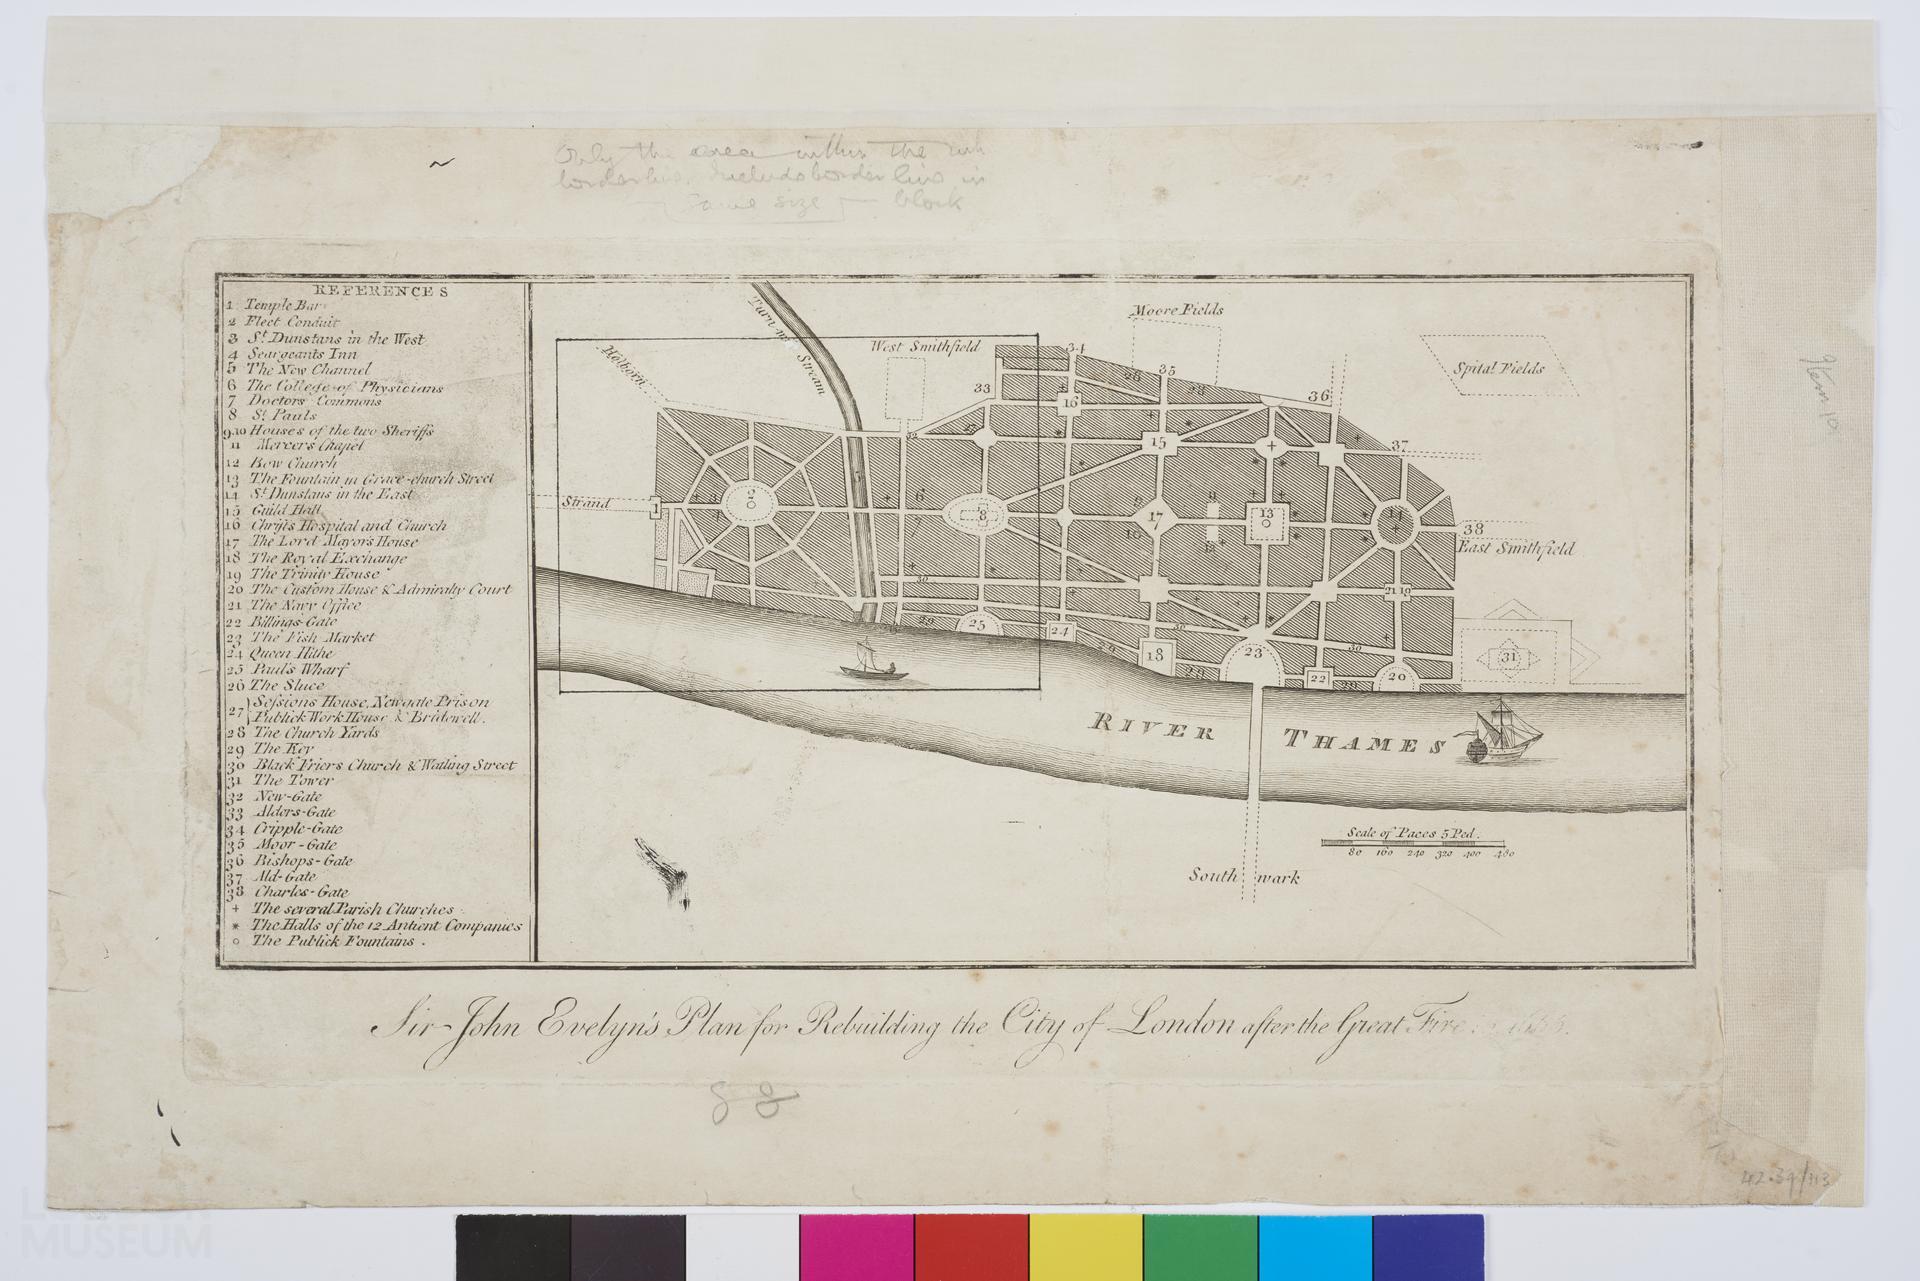 Only the area within the ink
borderline. Include border line in
same size block
Item 10
REFERENCES
1 Temple Bar
2 Fleet Conduit
3 St. Dunstans in the West
4 Seargeants Inn
5 The New Channel
6 The College of Physicians
7 Doctors Commons
8 St. Pauls
9.10 Houses of the two Sheriffs
11 Mercers Chapel
12 Bow Church
13 The Fountain in Grace-church Street
14 St. Dunstans in the East
15 Guild Hall
16 Christs Hospital and Church
17 The Lord Mayor's House
18 The Royal Exchange
19 The Trinity House
20 The Custom House & Admiralty Court
21 The Navy Office
22 Billings-Gate
23 The Fish Market
24 Queen Hithe
25 Pauls Wharf
26 The Sluce
27 Sessions House, Newgate Prison
Publick Work House & Bridewell.
28 The Church Yards
29 The Key
30 Black Friers Church & Watling Street
31 The Tower
32 New-Gate
33 Alders-Gate
34 Cripple-Gate
35 Moor-Gate
36 Bishops-Gate
37 Ald-Gate
38 Charles-Gate
+ The several Parish Churches
* The Halls of the 12 Antient Companies
o The Publick Fountains.
Turn-mill Stream
Holborn
West Smithfield
Moore Fields
Spital Fields
Strand
East Smithfield
33
34
35
36
37
38
28
28
16
15
27
32
1
2
3
5
6
7
8
9
10
17
11
12
13
14
30
21 19
29
25
24
29
30
18
29
23
22
29
30
20
31
RIVER THAMES
Scale of Paces 5 Ped.
80 160 240 320 400 480
Southwark
Sir John Evelyn's Plan for Rebuilding the City of London after the Great Fire
42.39/113
LONDON
MUSEUM